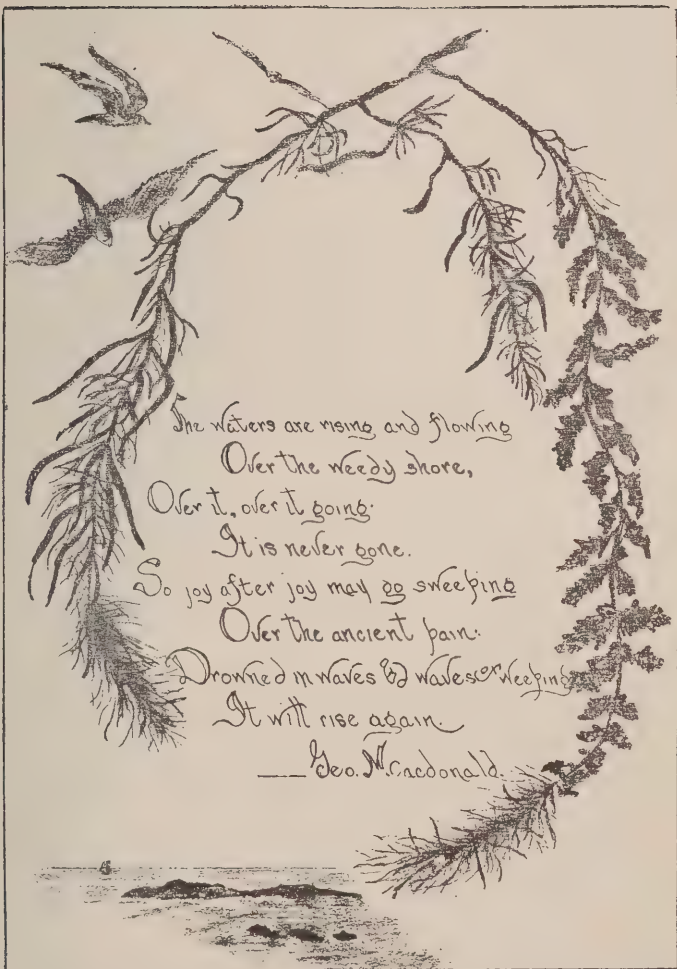 The waters are rising and flowing
Over the weedy shore,
Over it, over it going.
It is never gone.
So joy after joy may go sweeping
Over the ancient pain.
Drowned in waves & waves of weeping
It will rise again.
— Geo. Macdonald.